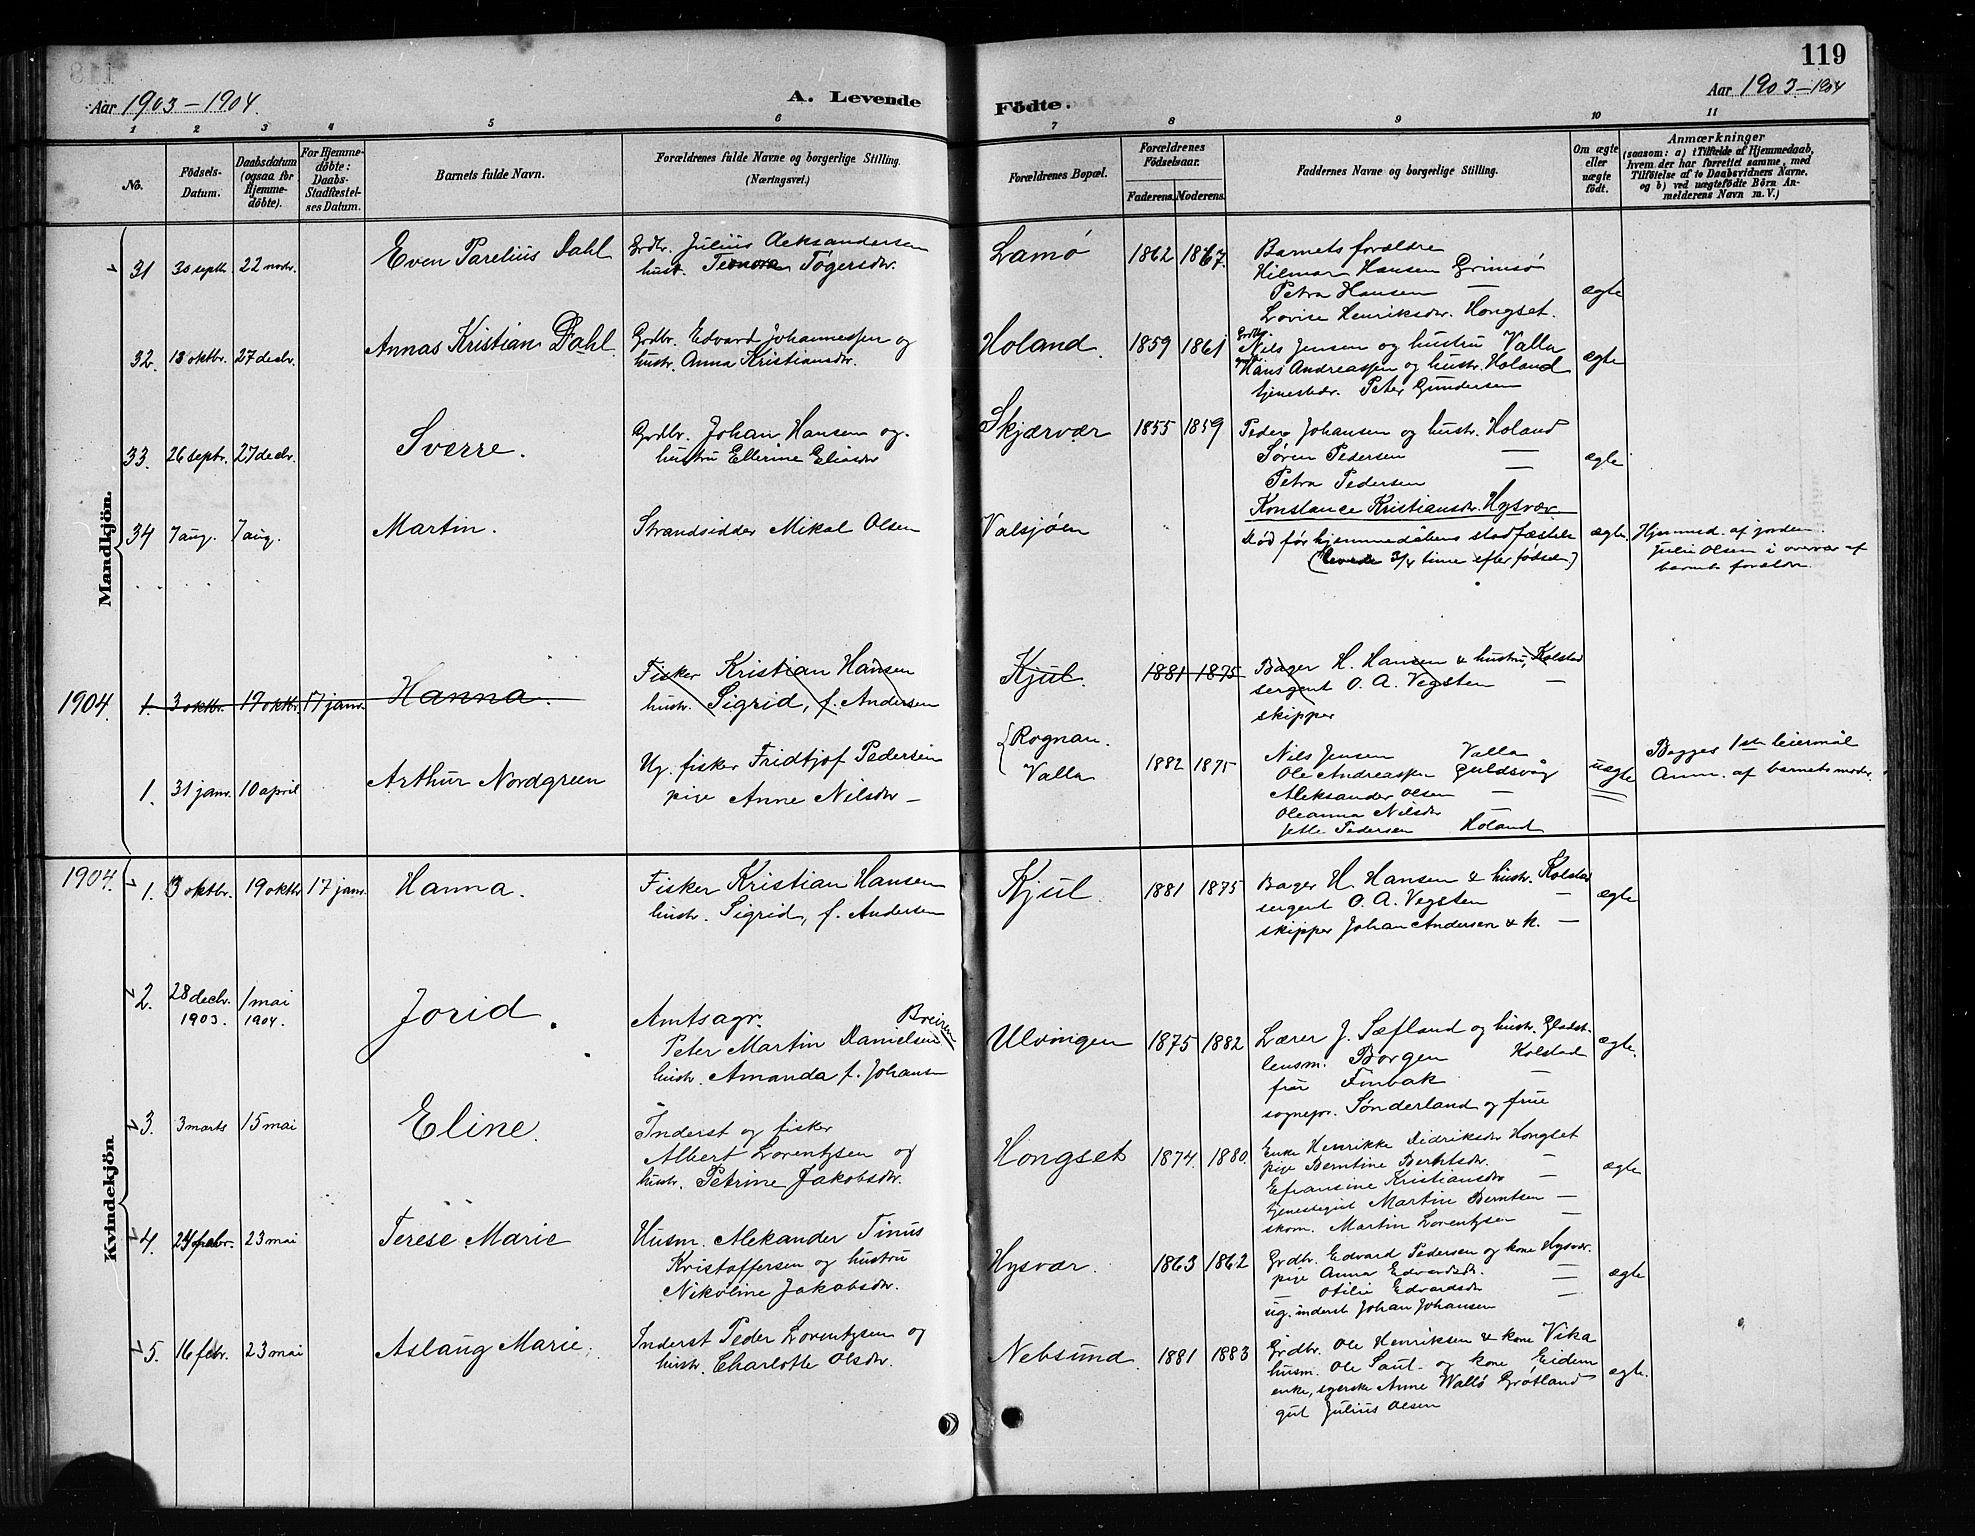 119
Aar 1903-1904.
A. Levende
Födte.
Aar 1903-1904
1 2 3 4 5 6 7 8 9 10 11
No.
Födsels-
Datum.
Daabsdatum
(ogsaa for
Hjemme-
döbte).
For Hjemme-
döbte:
Daabs-
Stadfæstel-
ses Datum.
Barnets fulde Navn.
Forældrenes fulde Navne og borgerlige Stilling.
(Næringsvei.)
Forældrenes Bopæl.
Forældrenes
Födselsaar.
Faderens. Moderens.
Faddernes Navne og borgerlige Stilling.
Om ægte
eller
uægte
födt.
Anmærkninger
(saasom: a) i Tilfælde af Hjemmedaab,
hvem der har forrettet samme, med
Tilföielse af to Daabsvidners Navne,
og b) ved uægtefödte Börn An-
melderens Navn m. V.)
Mandkjön.
31 30 septb. 22 novbr. Even Parelius Dahl
Grdbr. Julius Aeksandersen
hust. Tøgersdtr.
Lamø 1862 1867.
Barnets forældre
Hilmar Hansen Grimsø
Petra Hansen —
Lovise Henriksdtr. Hongset.
ægte
32. 13 oktbr. 27 decbr. Annas Kristian Dahl.
Grdbr. Edvard Johannessen og
hustr. Anna Kristiansdtr.
Holand. 1859 1861
Grdbr.
Nils Jensen og hustru Valla
Hans Andreassen og hustr. Holand
tjenestedr. Peter Gundersen
ægte
33. 26 septbr. 27 decbr. Sverre.
Grdbr. Johan Hansen og
hustru Ellerine Eliasdtr
Skjærvær 1855 1859
Peder Johansen og hustr. Holand
Søren Pedersen —
Petra Pedersen —
Konstance Kristiansdtr. Hysvær
ægte
34 7 aug. 7 aug. Martin.
Strandsidder Mikal Olsen
Valsjøen
død før hjemmedåbens stadfæstelse
(levede 3/4 time efter fødsen)
ægte.
Hjemmed. af jordem.
Julie Olsen i overvær af
barnets forældre.
1904. 1. 3 oktbr. 19 oktbr. 17 janr. Hanna.
Fisker Kristian Hansen
hustr. Sigrid, f. Andersen
Kjul. 1881 1875
Bager H. Hansen & hustru, Kolstad
sergent O. A. Vegsten —
skipper
1. 31 janr. 10 april Arthur Nordgreen
Ug. fisker Fridtjof Pedersen
pige Anne Nilsdtr —
{Rognan.
Valla
1882 1875
Nils Jensen Valla
Ole Andreassen Guldsvåg
Aleksander Olsen —
Oleanna Nilsdtr —
Jette Pedersen Holand
uægte
Begges 1ste leiermål
Anm. af barnets moder
Kvindekjön.
1904. 1. 3 oktbr. 19 oktbr 17 janr. Hanna.
Fisker Kristian Hansen
hustr. Sigrid, f. Andersen
Kjul 1881 1875
Bager H. Hansen & hustr. Kolstad
sergent O. A. Vegsten —
skipper Johan Andersen & k. —
ægte
2. 28 decbr. 1 mai
1903. 1904.
Jorid.
Amtsagr. Breirem
Peter Martin Danielsen
hustr. Amanda f. Johansen
Ulvingen 1875 1882
Lærer J. Sæfland og hustr. Gladst.
lensm. Borgen Kolstad
frue Finbak —
sognepr. Sønderland og frue
ægte.
3. 3 marts 15 mai Eline.
Inderst og fisker
Albert Lorentzsen og
hustr. Petrine Jakobsdtr.
Hongset 1874. 1880.
Enke Henrikke Didriksdtr Hongset
pige Berntine Berntsdtr. —
Efransine Kristiansdtr —
tjenestegut Martin Berntsen —
skom. Martin Lorentzsen —
ægte
4. 24 febr. 23 mai Terese Marie
Husm. Alekander Tinus
Kristoffersen og hustru
Nikoline Jakobsdtr.
Hysvær. 1863 1862
Grdbr. Edvard Pedersen og kone Hysvær.
pige Anna Edvardsdtr. —
— Otilie Edvardsdtr —
ug. inderst Johan Johansen —
ægte
5. 16 febr. 23 mai Aslaug Marie.
Inderst Peder Lorentzsen og
hustr. Charlotte Olsdtr.
Nebsund. 1881 1883
Grdbr. Ole Henriksen & kone Vika
husm. Ole Saul. og kone Eidem
enke, syerske Anne Wallø Grøtland
gut Julius Olsen
ægte.